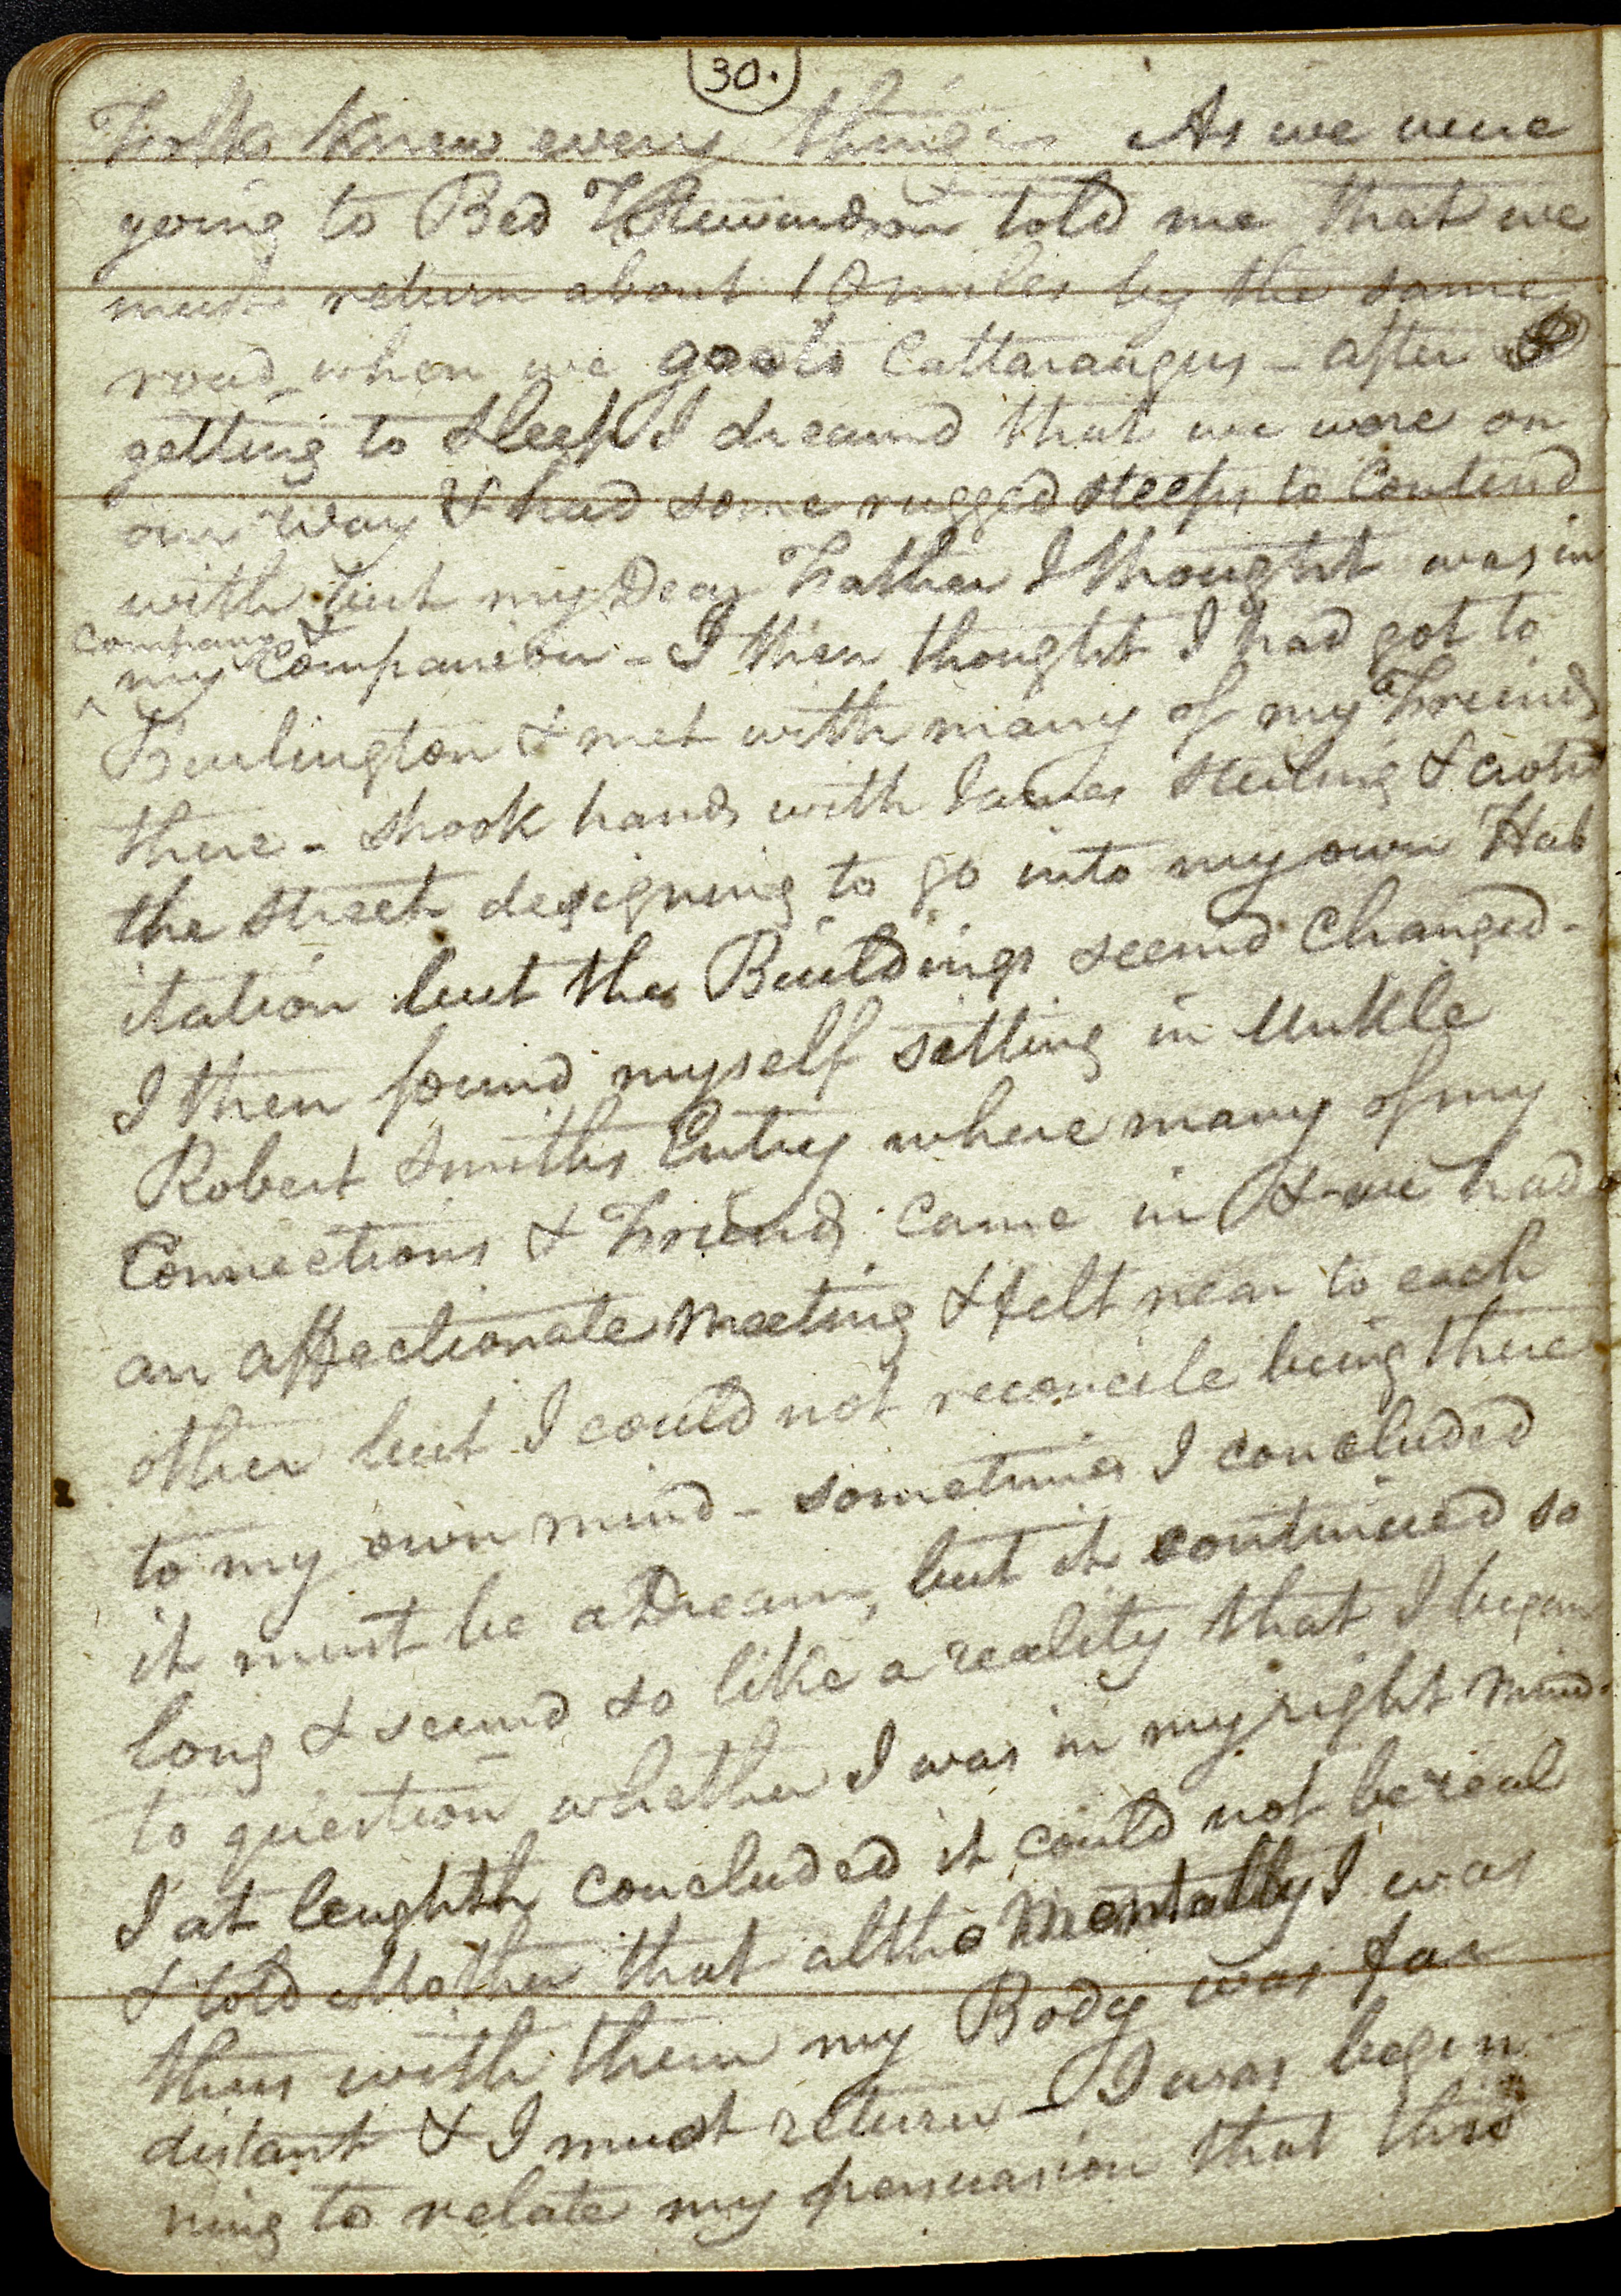 30.
Folks knew every things As we were
going to Bed told me that we
must return about 10 miles by the same
road when we go to Cattaraugus - after
getting to sleep I dreamd that we were on
our way & had some rugged steeps to Contend
with but my Dear Father I thought was in
company &
my Companion - I then thought I had got to
Burlington & met with many of my Friends
there - shook hands with James Sterling & crost
the street designing to go into my own Hab
itation but the Buildings seemd changed -
I then found myself setting in Unkle
Robert Smiths Entry where many of my
Connections & Friends came in & we had
an affectionate meeting & felt near to each
other but I could not reconcile being there
to my own mind - sometimes I concluded
it must be a Dream, but it continued so
long & seemd so like a reality that I began
to question whether I was in my right mind -
I at leughth concluded it could not be real
& told Mother that altho mentally I was
thus with them my Body was far
distant & I must return - I was begin
ning to relate my persuasion that this